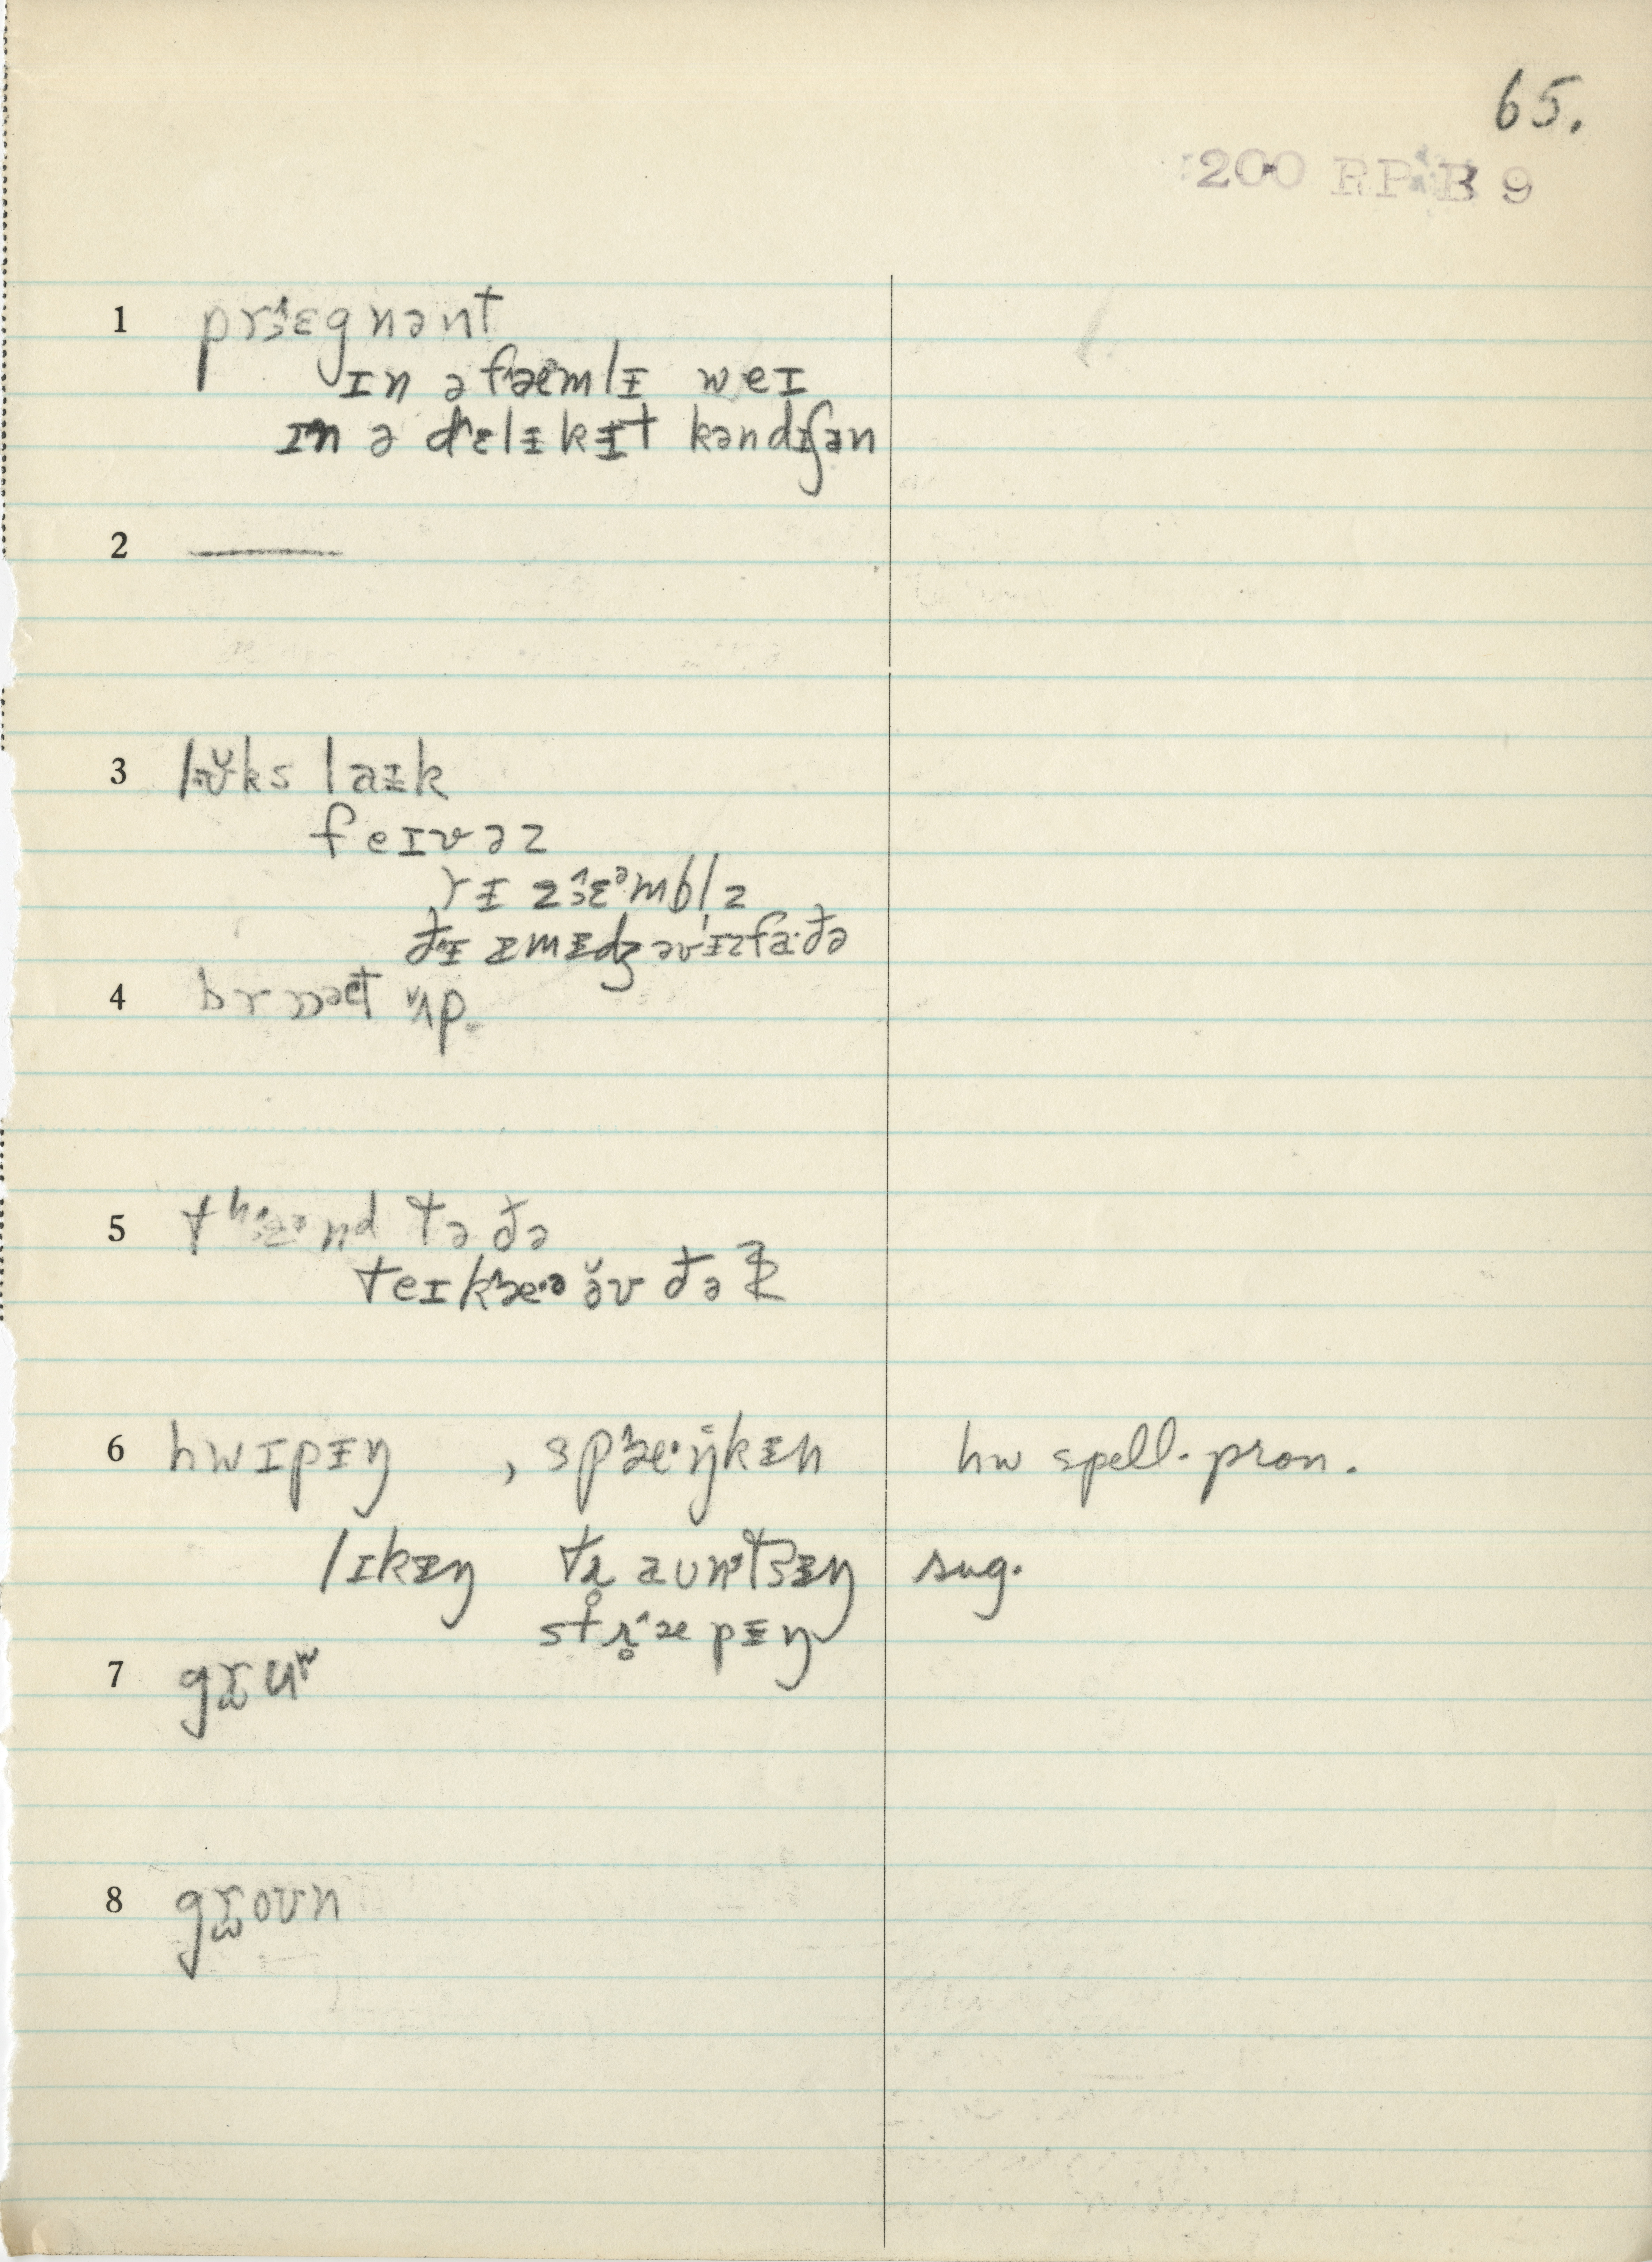 65.
200 RP B 9
1 prɜ̂ɛgnənt
ɪn ə fæ̂mlɪ̵ weɪ
ɪn ə dɛlɪ̵kɪ̵t kəndɪʃən
2 ———
3 lʊ̆ks laɪ̵k
feɪvəz
rɪ̵zɜ̂ɛᵊmbl̩z
ðɪ̵ ɪ̵mɪ̵dʒ əv ɪ̵z fa·ðə
4 ʌ̆p
5 tə ðə
teɪkæ·ə ə̆v ðə
6 hwɪpɪ̵ŋ , spæ·ŋkɪ̵n hw spell-pron.
lɪkɪ̵ŋ tr̥aunᵗsɪ̵ŋ sug.
str̥æ̂pɪ̵ŋ
7 gɪ̵uʷ
8 goʊn